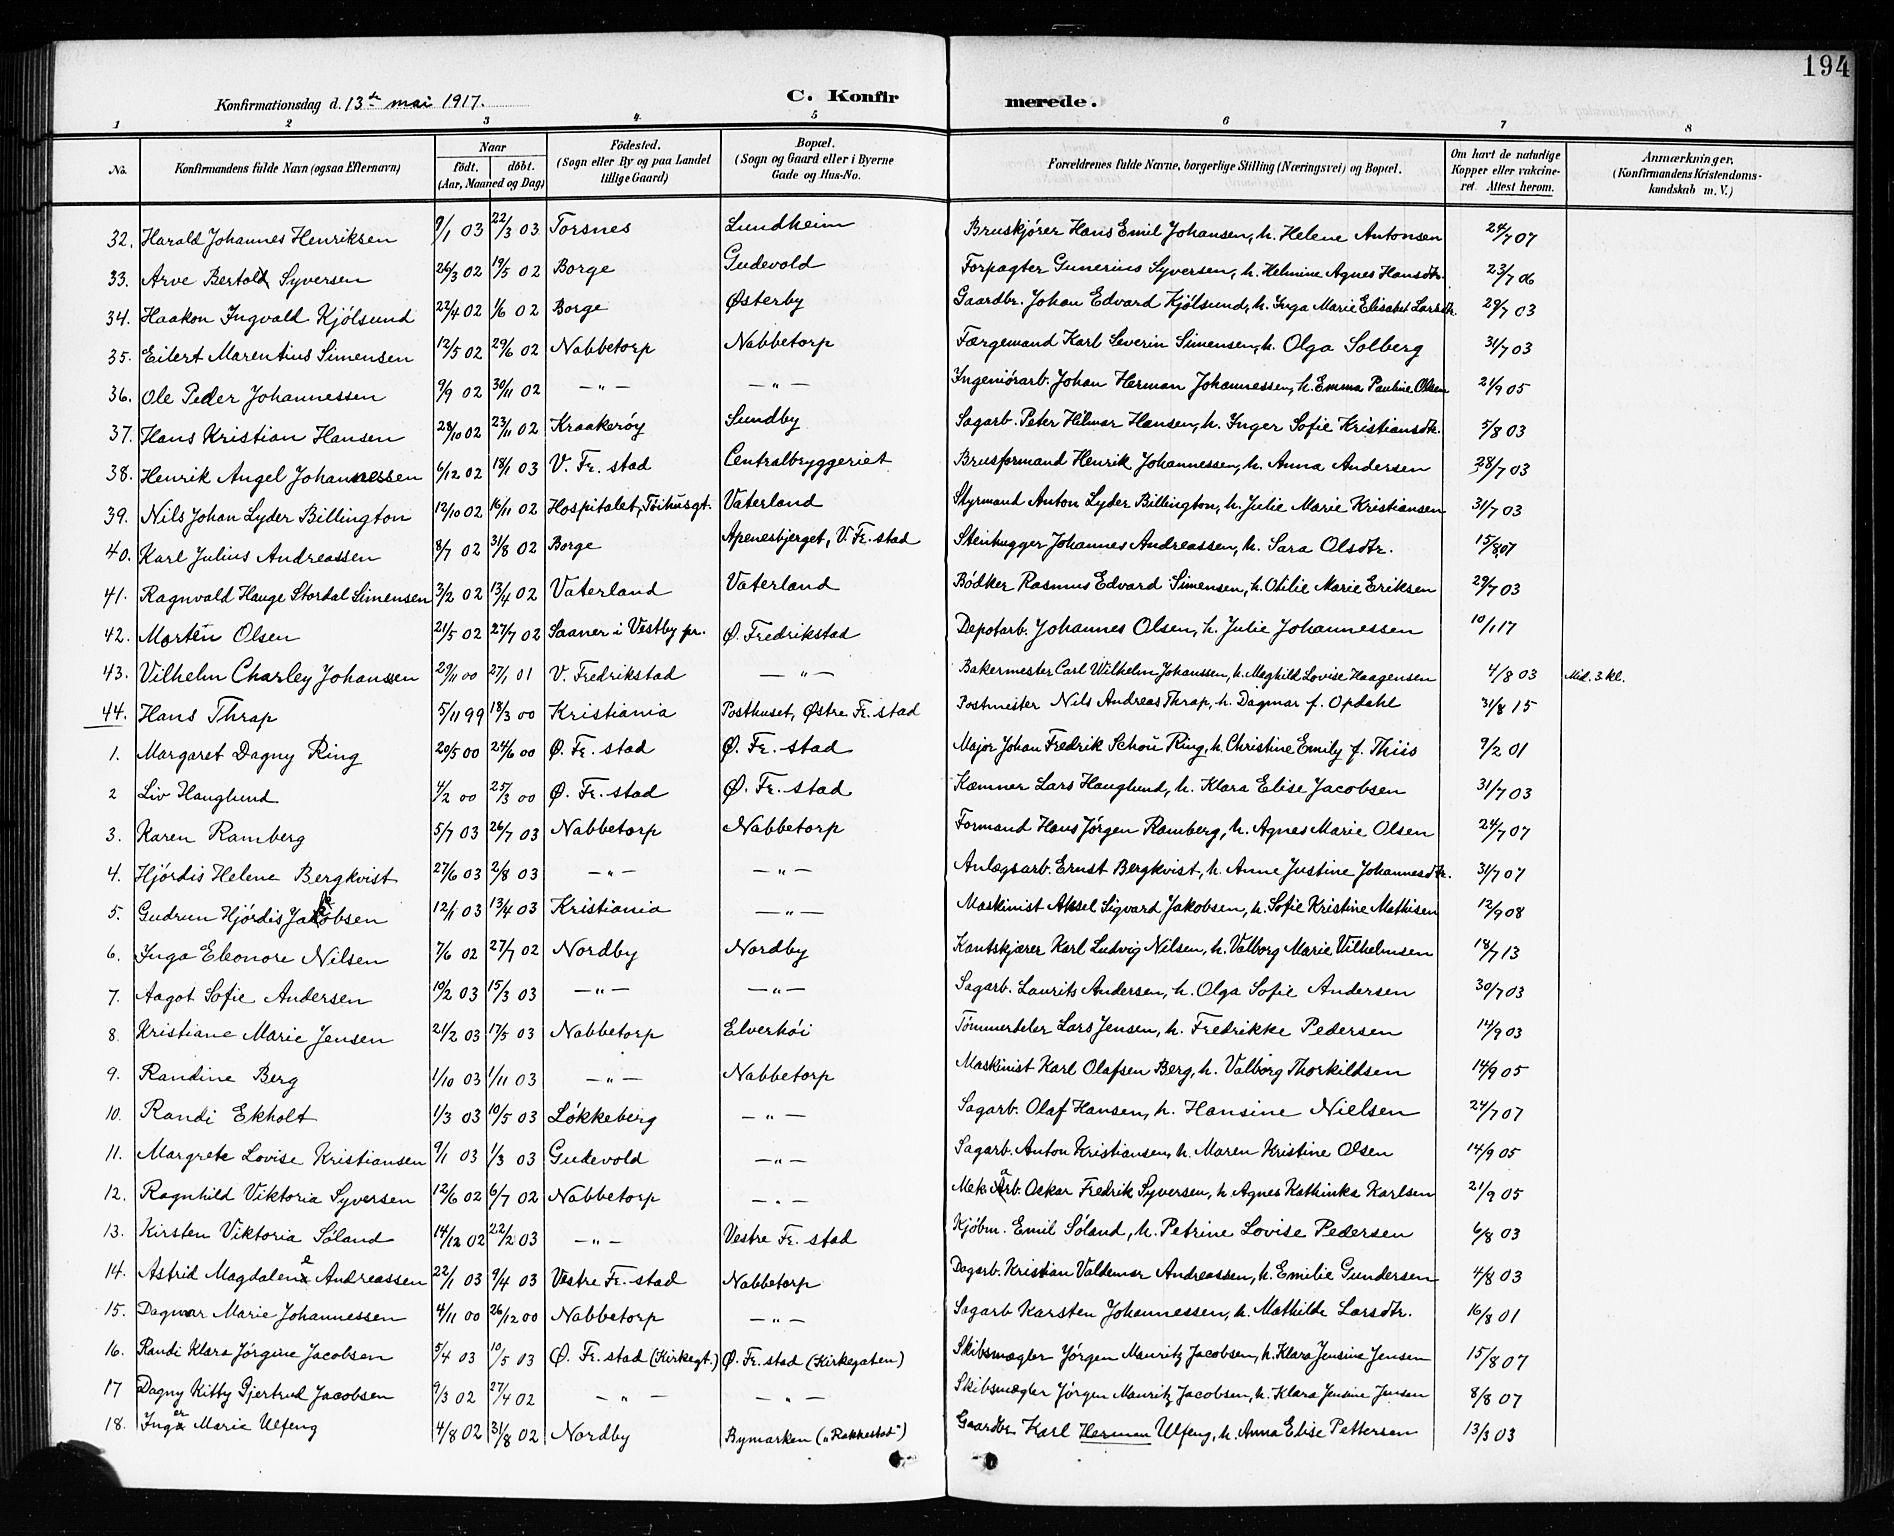 194
Konfirmationsdag d. 13de mai 1917. C. Konfirmerede.
1 2 3 4 5 6 7 8
No. Konfirmandens fulde Navn (ogsaa Efternavn) Naar født. døbt. (Aar, Maaned og Dag) Födested. (Sogn eller By og paa Landet tillige Gaard) Bopæl. (Sogn og Gaard eller i Byerne Gade og Hus-No. Forældrenes fulde Navne, borgerlige Stilling (Næringsvei) og Bopæl. Om havt de naturlige Kopper eller vakcineret. Attest herom. Anmærkninger. (Konfirmandens Kristendomskundskab m. V.)
32. Harald Johannes Henriksen 9/1 03 22/3 03 Torsnes Lundheim Bruskjører Hans Emil Johansen, h. Helene Antonsen 24/7 07
33. Arve Bertold Syversen 26/3 02 19/5 02 Borge Gudevold Forpagter Gunerius Syversen, h. Helmine Agnes Hansdtr. 23/7 06
34. Haakon Ingvald Kjölsund 22/4 02 1/6 02 Borge Østerby Gaardbr. Johan Edvard Kjölsund, h. Inga Marie Elisabet Larsdtr. 29/7 03
35. Eilert Marentius Simensen 12/5 02 29/6 02 Nabbetorp Nabbetorp Færgemand Karl Severin Simensen, h. Olga Solberg 31/7 03
36. Ole Peder Johannessen 9/9 02 30/11 02 — " — — " — Ingeniörarb. Johan Herman Johannessen, h. Emma Pauline Olsen 21/9 05
37. Hans Kristian Hansen 28/10 02 23/11 02 Kraakeröy Sundby Sagarb. Peter Hilmar Hansen, h. Inger Sofie Kristiansdtr. 5/8 03
38. Henrik Angel Johannessen 6/12 02 18/1 03 V. Fr. stad Centralbryggeriet Brusformand Henrik Johannessen, h. Anna Andersen 28/7 03
39. Nils Johan Lyder Billington 12/10 02 16/11 02 Hospitalet, Töihusgt. Vaterland Styrmand Anton Lyder Billington, h. Julie Marie Kristiansen 31/7 03
40. Karl Julius Andreassen 8/7 02 31/8 02 Borge Apenesbjerget, V. Fr. stad Stenhugger Johannes Andreassen, h. Sara Olsdtr. 15/8 07
41. Ragnvald Hauge Stordal Simensen 3/2 02 13/4 02 Vaterland Vaterland Bödker Rasmus Edvard Simensen, h. Otilie Marie Eriksen 29/7 03
42. Morten Olsen 21/5 02 27/7 02 Saaner i Vestby pr. Ø. Fredrikstad Depotarb. Johannes Olsen, h. Julie Johannessen 10/1 17
43. Vilhelm Charley Johanssen 29/11 00 27/1 01 V. Fredrikstad — " — Bakermester Carl Wilhelm Johanssen, h. Maghild Lovise Haagensen 4/8 03 Mid. 3 kl.
44. Hans Thrap 5/11 99 18/3 00 Kristiania Posthuset, Østre Fr. stad Postmester Nils Andreas Thrap, h. Dagmar f. Opdahl 31/8 15
1. Margaret Dagny Ring 20/5 00 24/6 00 Ø. Fr. stad Ø. Fr. stad Major Johan Fredrik Schou Ring, h. Christine Emily f. Thiis 9/2 01
2 Liv Hauglund 4/2 00 25/3 00 Ø. Fr. stad Ø. Fr. stad Kæmner Lars Hauglund, h. Klara Elise Jacobsen 31/7 03
3. Karen Ramberg 5/7 03 26/7 03 Nabbetorp Nabbetorp Formand Hans Jörgen Ramberg, h. Agnes Marie Olsen 24/7 07
4. Hjördis Helene Bergkvist 27/6 03 2/8 03 — " — — " — Anlægsarb. Ernst Bergkvist, h. Anne Justine Johannesdtr. 31/7 07
5. Gudrun Hjördis Jakobsen 12/1 03 13/4 03 Kristiania — " — Maskinist Aksel Sigvard Jakobsen, h. Sofie Kristine Mathisen 12/9 08
6. Inga Eleonore Nilsen 7/6 02 27/7 02 Nordby Nordby Kantskjærer Karl Ludvig Nilsen, h. Valborg Marie Vilhelmsen 18/7 13
7. Aagot Sofie Andersen 10/2 03 15/3 03 — " — — " — Sagarb. Laurits Andersen, h. Olga Sofie Andersen 30/7 03
8. Kristiane Marie Jensen 21/2 03 17/5 03 Nabbetorp Elverhöi Tömmerdeler Lars Jensen, h. Fredrikke Pedersen 14/9 03
9. Randine Berg 1/10 03 1/11 03 — " — Nabbetorp Maskinist Karl Olafsen Berg, h. Valborg Thorkildsen 14/9 05
10. Randi Ekholt 1/3 03 10/5 03 Lökkeberg — " — Sagarb. Olaf Hansen, h. Hansine Nielsen 24/7 07
11. Margrete Lovise Kristiansen 9/1 03 1/3 03 Gudevold — " — Sagarb. Anton Kristiansen, h. Maren Kristine Olsen 14/9 05
12. Ragnhild Viktoria Syversen 12/6 02 6/7 02 Nabbetorp — " — Mek. Arb. Oskar Fredrik Syversen, h. Agnes Kathinka Karlsen 21/9 05
13. Kirsten Viktoria Söland 14/12 02 22/2 03 — " — Vestre Fr. stad Kjöbm. Emil Söland, h. Petrine Lovise Pedersen 6/8 03
14. Astrid Magdalene Andreassen 22/1 03 9/4 03 Vestre Fr. stad Nabbetorp Dagarb. Kristian Valdemar Andreassen, h. Emilie Gundersen 4/8 03
15. Dagmar Marie Johannessen 4/11 00 26/12 00 Nabbetorp — " — Sagarb Karsten Johannessen, h. Mathilde Larsdtr. 16/8 01
16. Randi Klara Jörgine Jacobsen 5/4 03 10/5 03 Ø. Fr. stad (Kirkegt.) Ø. Fr. stad (Kirkegaten) Skibsmægler Jörgen Mauritz Jacobsen, h. Klara Jensine Jensen 15/8 07
17 Dagny Kitty Gjertrud Jacobsen 9/3 02 27/4 02 — " — — " — Skibsmægler Jörgen Mauritz Jacobsen, h. Klara Jensine Jensen 8/8 07
18. Inger Marie Ulfeng 4/8 02 31/8 02 Nordby Bymarken ("Rakkestad") Gaardbr. Karl Herman Ulfeng, h. Anna Elise Pettersen 13/3 03